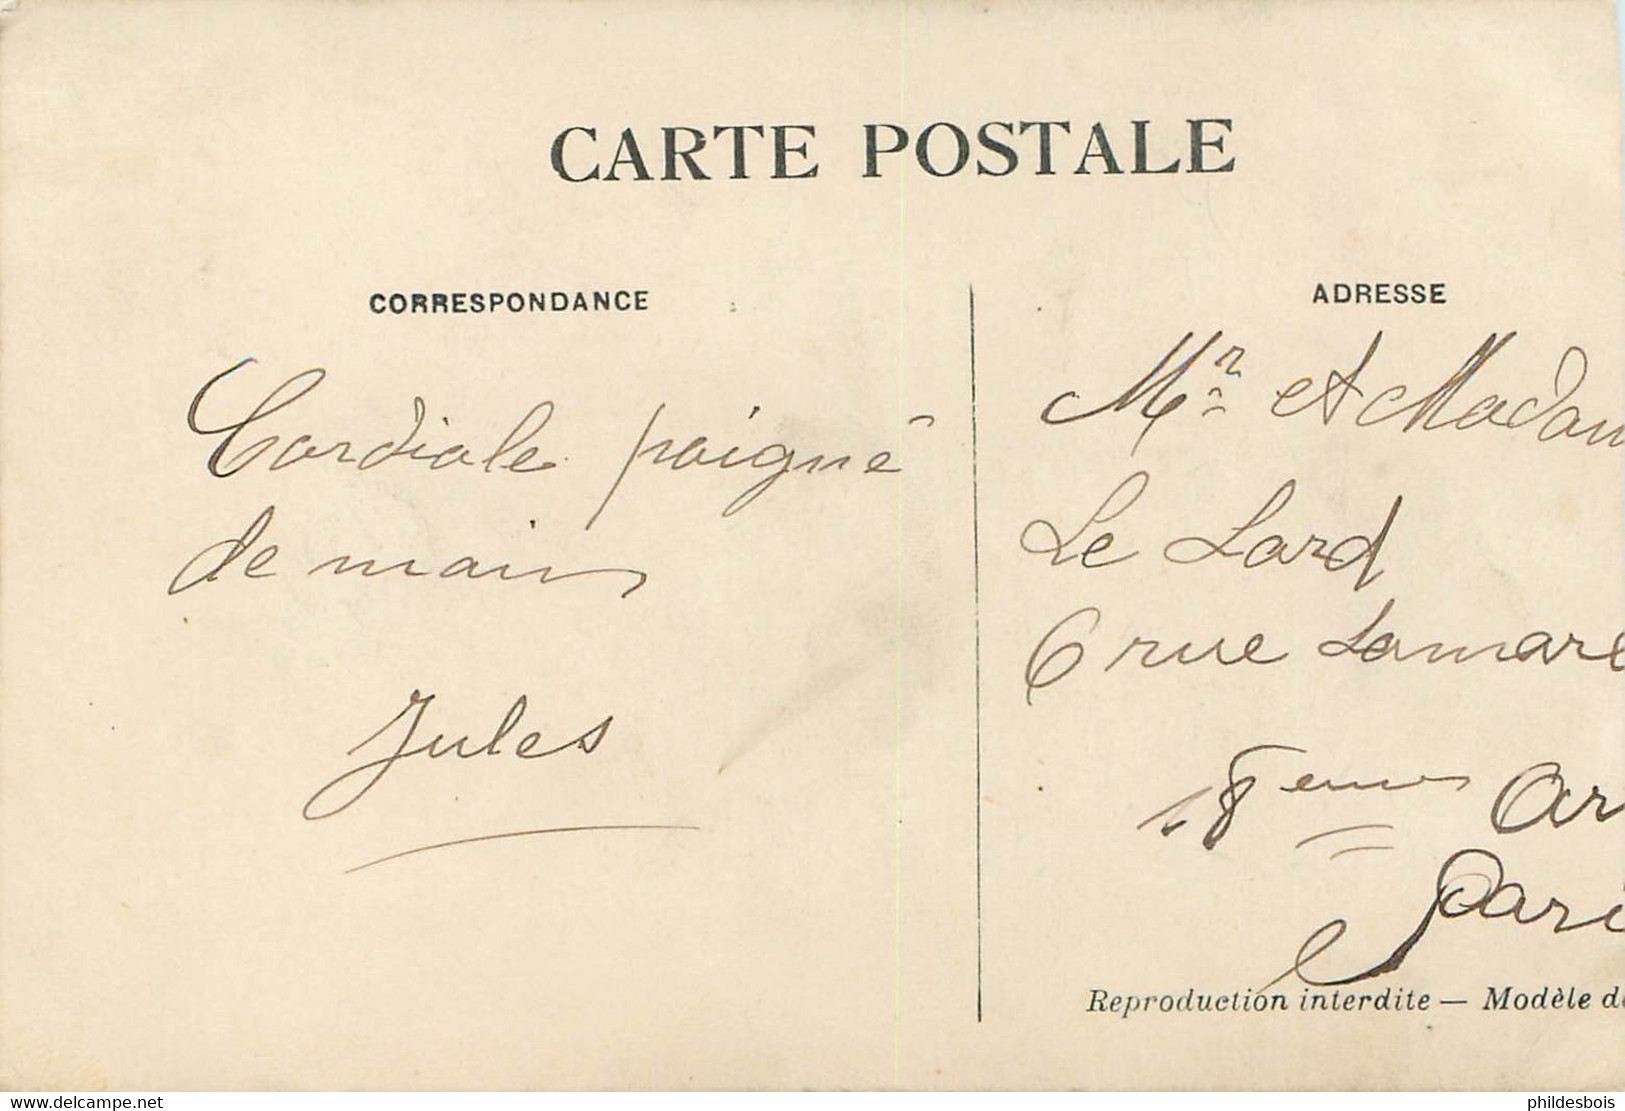 CARTE POSTALE
CORRESPONDANCE
Cordiale poigné
de main
Jules
ADRESSE
Mr et Madam
Le Lard
6 rue Lamare
18eme Ar
Pari
Reproduction interdite — Modèle d
www.delcampe.net
phildesbois